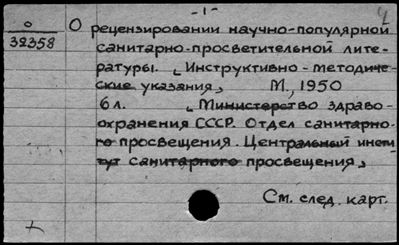 -1-
О
32358
О рецензировании научно-популярной
санитарно-просветительной лите-
ратуры. „Инструктивно-методиче-
ские указания„ М., 1950
6 л. „Министерство здраво-
охранения СССР. Отдел санитарно-
го просвещения. Центральный инсти
тут санитарного просвещения„
См. след. карт.